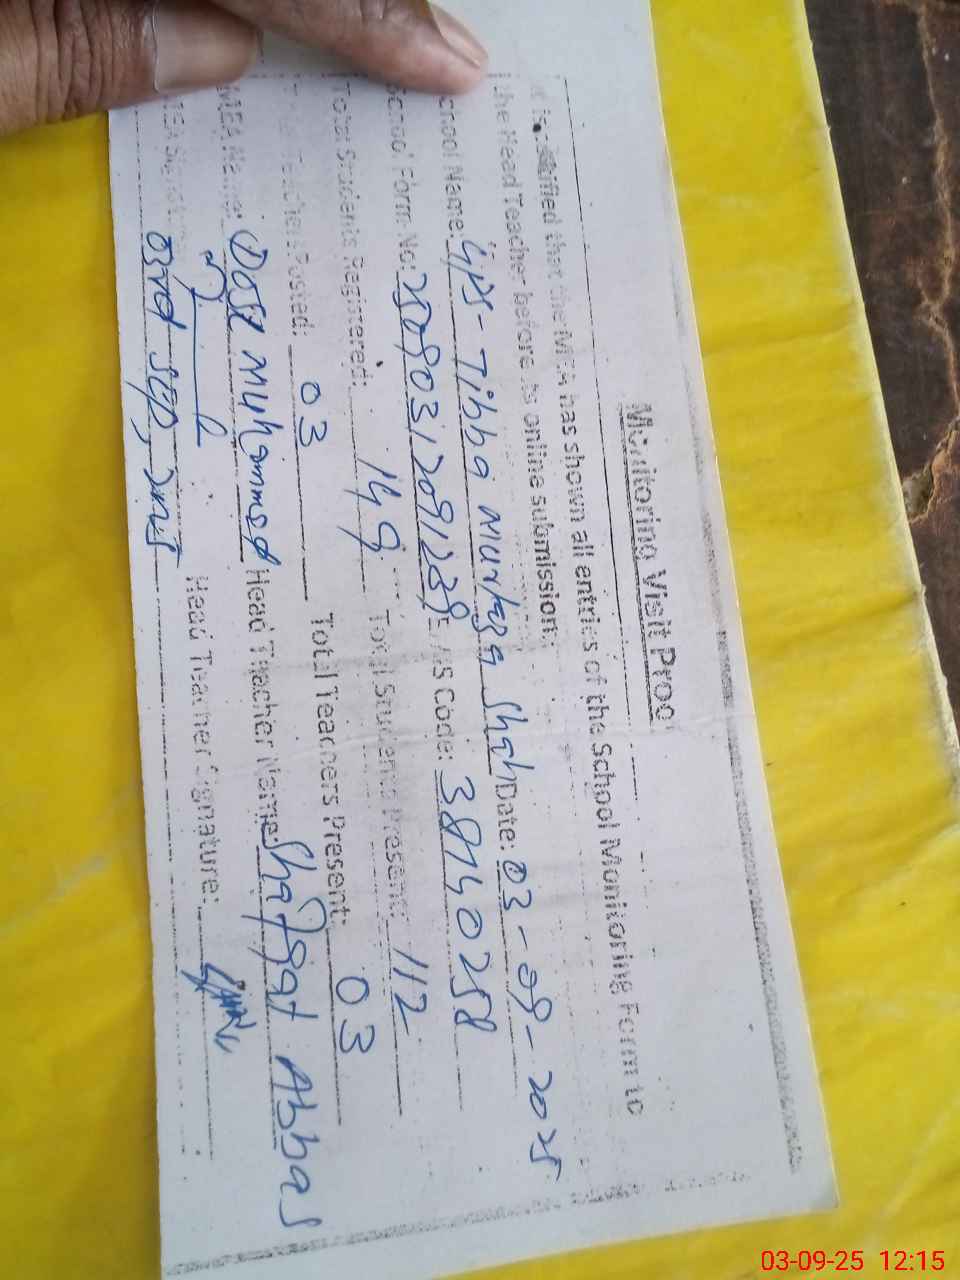 Monitoring Visit Proof
It is certified that the MEA has shown all entries of the School Monitoring Form to
the Head Teacher before its online submission:
School Name: GPS-Tibba Murtaza Shah Date: 03-09-2025
School Form No: Code: 38140258
Total Students Registered: 149 Total Students Present: 112
Teachers Posted: 03 Total Teachers Present: 03
MEA Name: Dost Muhammad Head Teacher Name: Shafqat Abbas
MEA Signature Head Teacher Signature:
03rd Sep, 2025
03-09-25 12:15